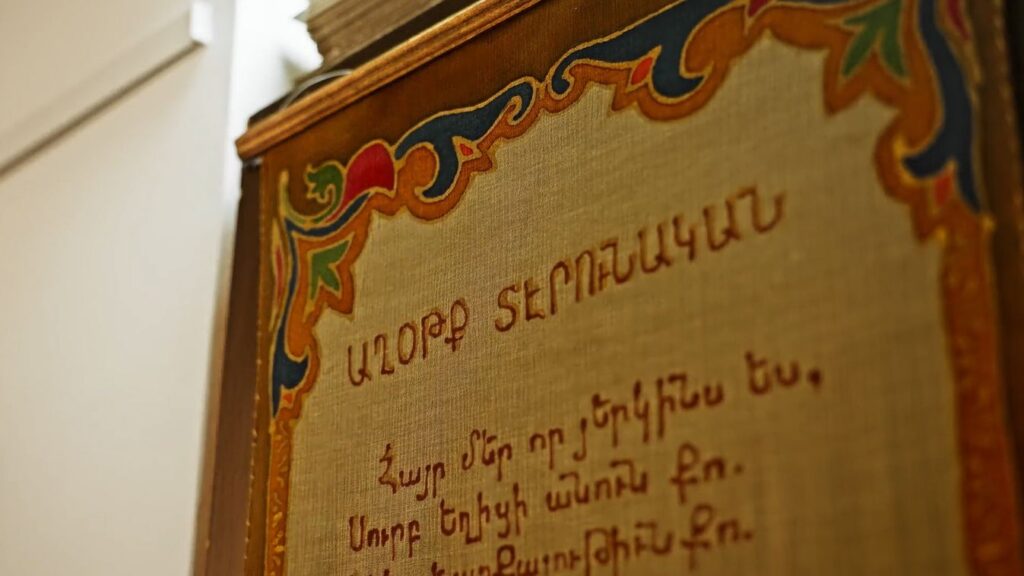 ԱՂՕԹՔ ՏԷՐՈՒՆԱԿԱՆ
Հայր մեր որ յերկինս ես,
Սուրբ եղիցի անուն քո.
արքայութիւն քո.